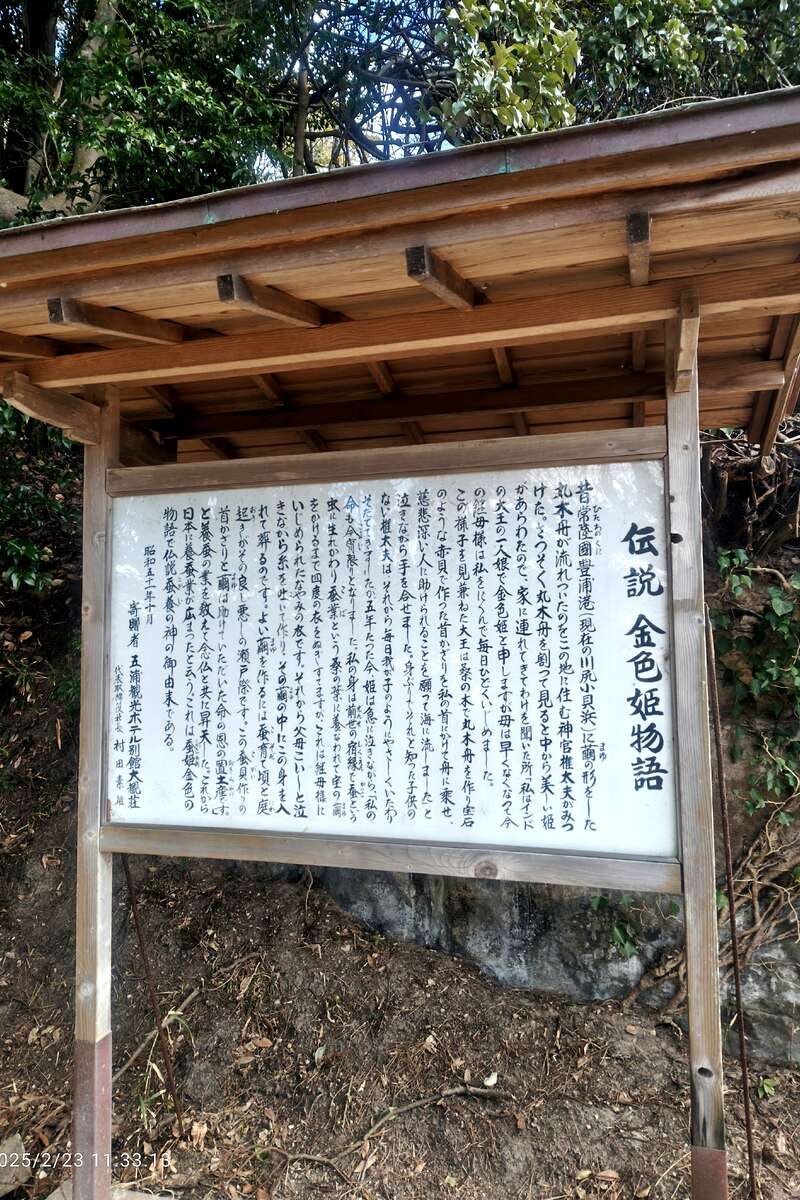 伝説 金色姫物語
昔常陸國豊浦港(現在の川尻小貝浜)に繭の形をした
丸木舟が流れついたのをこの地に住む神官権太夫がみつ
けた。さつそく丸木舟を割つて見ると中から美しい姫
があらわれたので、家に連れてきてわけを聞いた所、「私はインド
の大王の一人娘で金色姫と申しますが母は早くなくなつて今
の継母様は私をにくんで毎日ひどくいじめました。
この様子を見兼ねた大王は桑の木で丸木舟を作り宝石
のような赤貝で作つた首かざりを私の首にかけて舟に乗せ、
慈悲深い人に助けられることを願つて海に流しました」と
泣きながら手を合せました。身ぶりでそれと知つた子供の
ない権太夫は、それから毎日我が子のようにやさしくいたわり
そだててきましたが五年たつた今姫は急に泣きながら、「私の
命も今宵限りとなりました。私の身は前世の宿縁で蚕という
虫に生れかわり蚕業という桑の葉に養なわれて室の繭
をかけるまで四度の衣をぬぎすてますが、これは継母様に
いじめられたなやみの衣です。それから父母こいしと泣
きながら糸を吐いて作り、その繭の中にこの身を入
れて葬るのです。よい繭を作るには蚕育て頃と庭
起きがその良し悪しの瀬戸際です。この蚕貝作りの
首かざりと繭は助けていただいた命の恩の置土産です。」
と養蚕の業を教えて念仏と共に昇天した。これから
日本に養蚕業が広まつたと云う。これは蚕姫金色の
物語で仏説蚕養の神の御由来である。
昭和五十一年十月
寄贈者 五浦観光ホテル別館大観荘
代表取締役社長 村田
2025/2/23 11:33:13